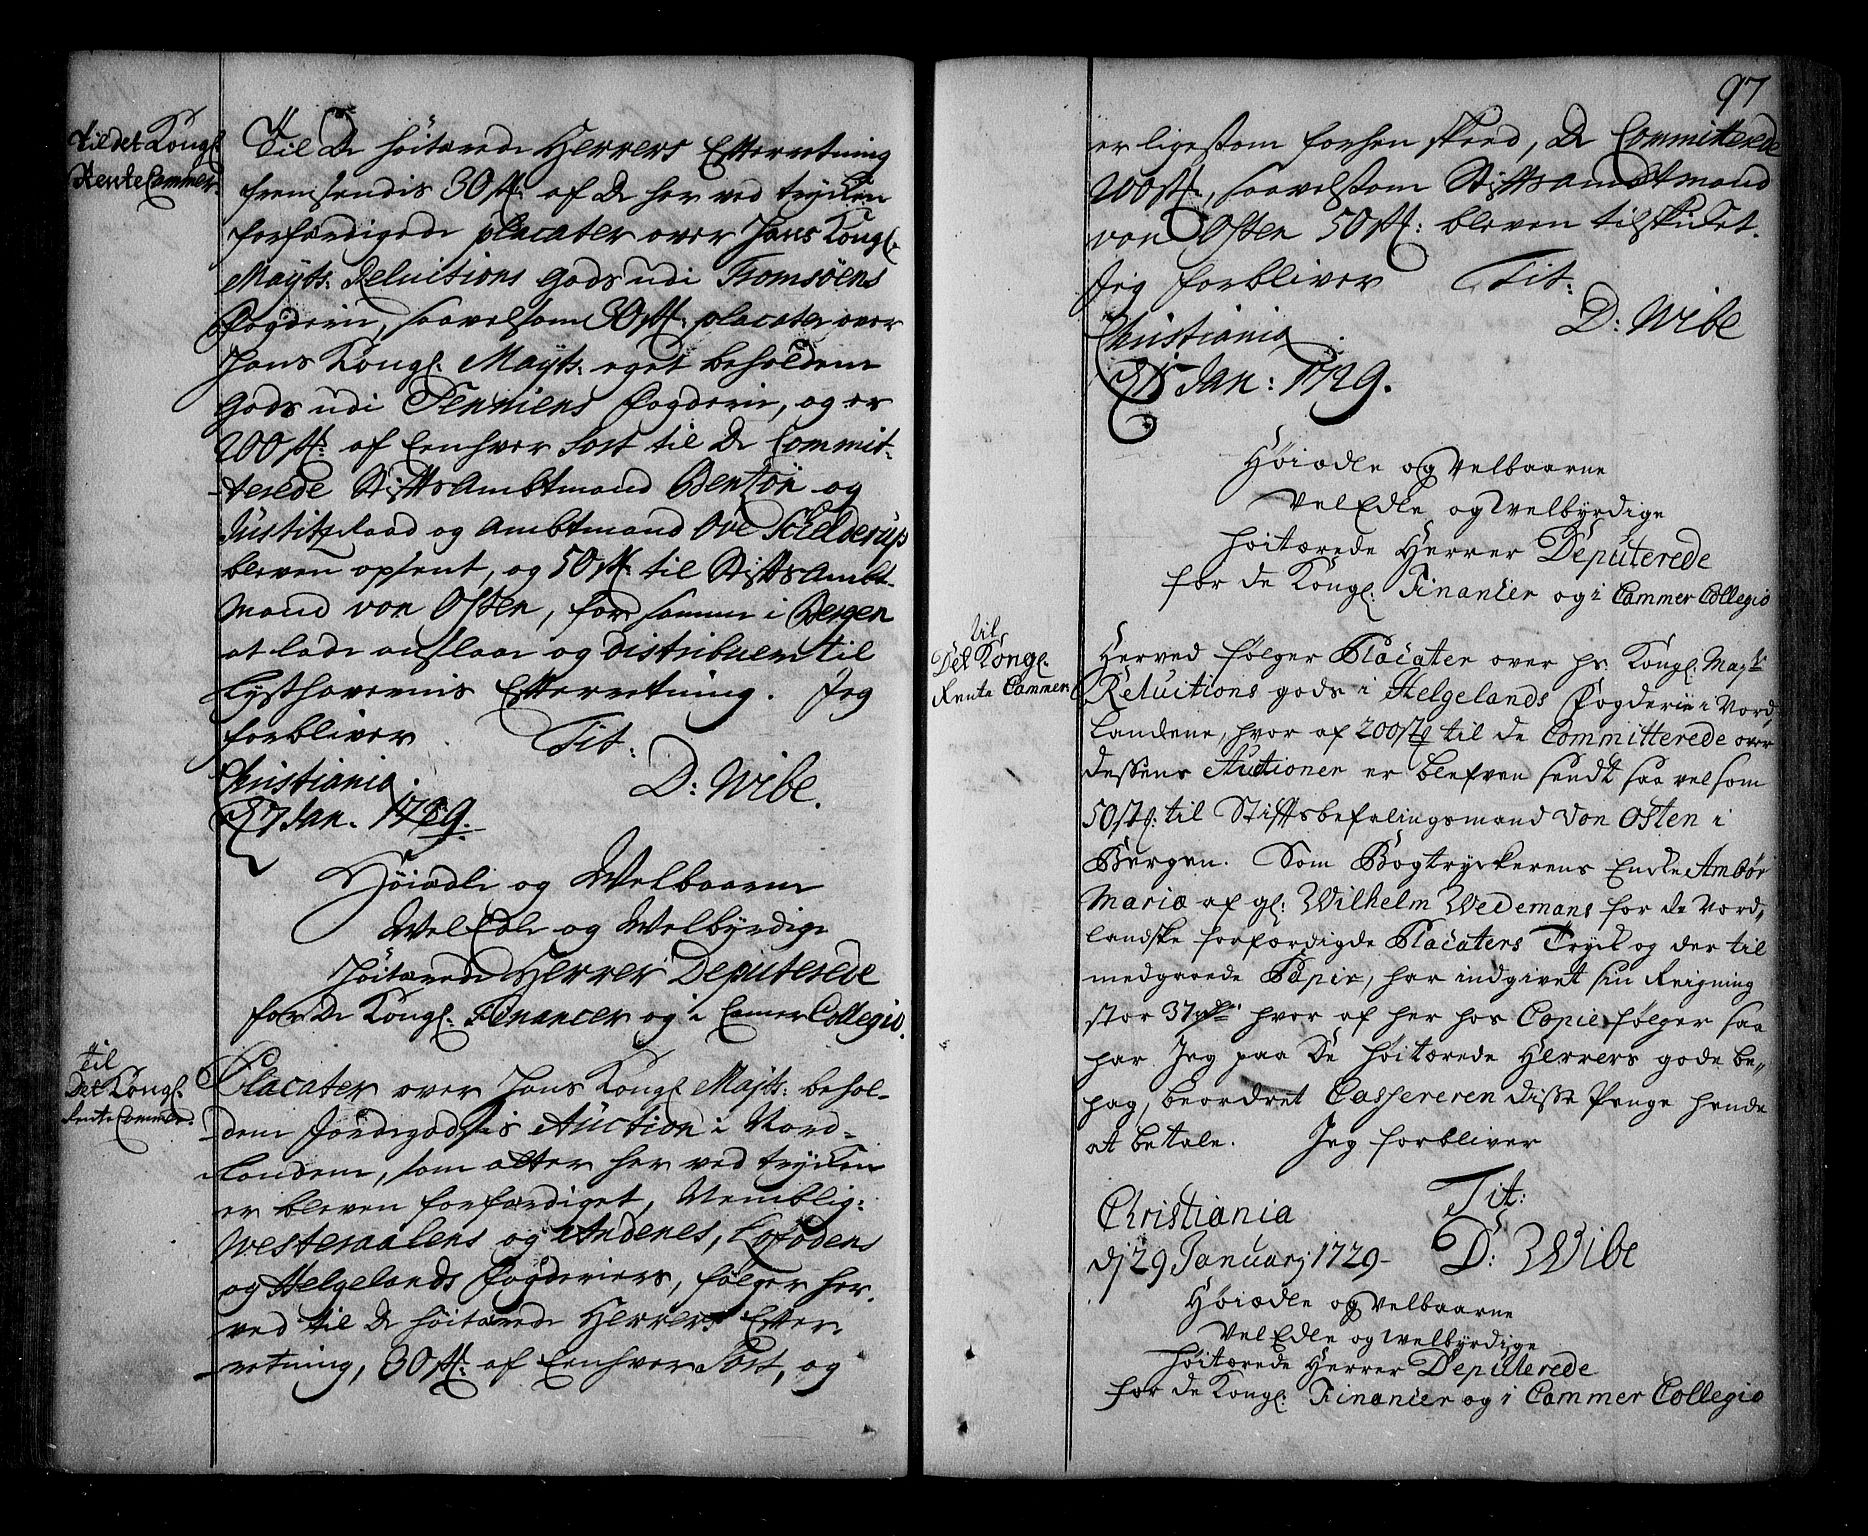 Til det Kongl.
Rente Cammer.
Til De höitærede Herrers Efterretning
fremsendis 30 st: af de her ved trycken
forfærdigede placater over Hans Kongl.
Mayts: Reluitions Gods udi Tromsöens
Fogderie, saavelsom 30 st: placater over
Hans Kongl. Mayts: eget beholdene
Gods udi Senniens Fogderie, og er
200 st: af Eenhver Sort til De Commit-
terede Stiftsambtmand Bentzön og
Justitz Raad og Ambtmand Ove Schielderup
bleven opsent, og 50 st: til Stiftsambt-
mand von Osten, for samme i Bergen
at lade anslaae og distribuere til
Lysthavernis Efterretning. Jeg
forbliver Tit:
Christiania D: Wibe.
27 Jan. 1729.
Höiædle og Welbaarne
WelEdle og Welbyrdige
Höitærede Herrer Deputerede
for De Kongl. Financer og i Camer Collegio.
Til
Det Kongl.
Rente Cammer.
Placater over Hans Kongl. Mayts: behol-
dene Jordegodsis Auction i Nord-
landene, som atter her ved trycken
er bleven forfærdiget, Nemblig:
Westeraalens og Andenes, Lofodens
og Helgelands Fogderiers, fölger her-
ved til De höitærede Herrers Efter-
retning, 30 st: af Eenhver Sort, og
97
er ligesom forhen skeed, De Committerede
200 st:, saavelsom Stiftsambtmand
von Osten 50 st: bleven tilskicket.
Jeg forbliver Tit:
Christiania D: Wibe
Jan: 1729.
Höiædle og Velbaarne
VelEdle og Velbyrdige
höitærede Herrer Deputerede
for de Kongl. Financer og i Cammer Collegio
Til
Det Kongl.
Rente Cammer
Herved fölger Placater over hs: Kongl. Mayts
Reluitions gods i Helgelands Fogderie i Nord
Landene, hvor af 200 st: til de Committerede over
dessens Auctioner er blefven sendt saa vel som
50 st: til Stiftsbefalingsmand Von Osten i
Bergen. Som Bogtryckerens Encke Ambör
Maria af gl: Wilhelm Wedemans for de Nord,
landske forfærdigde Placaters Tryck og der til
medgaaede Papir, har indgivet sin Reigning
stor 37 rdr hvor af her hos Copie fölger saa
har Jeg paa De höitærede Herrers gode be-
hag, beordret Cassereren disse Penge hende
at betale. Jeg forbliver
Tit:
Christiania
dj 29 Januarj 1729 - D: Wibe
Höiædle og Velbaarne
VelEdle og Welbyrdige
höitærede Herrer Deputerede
for de Kongl. Financer og i Cammer Collegio